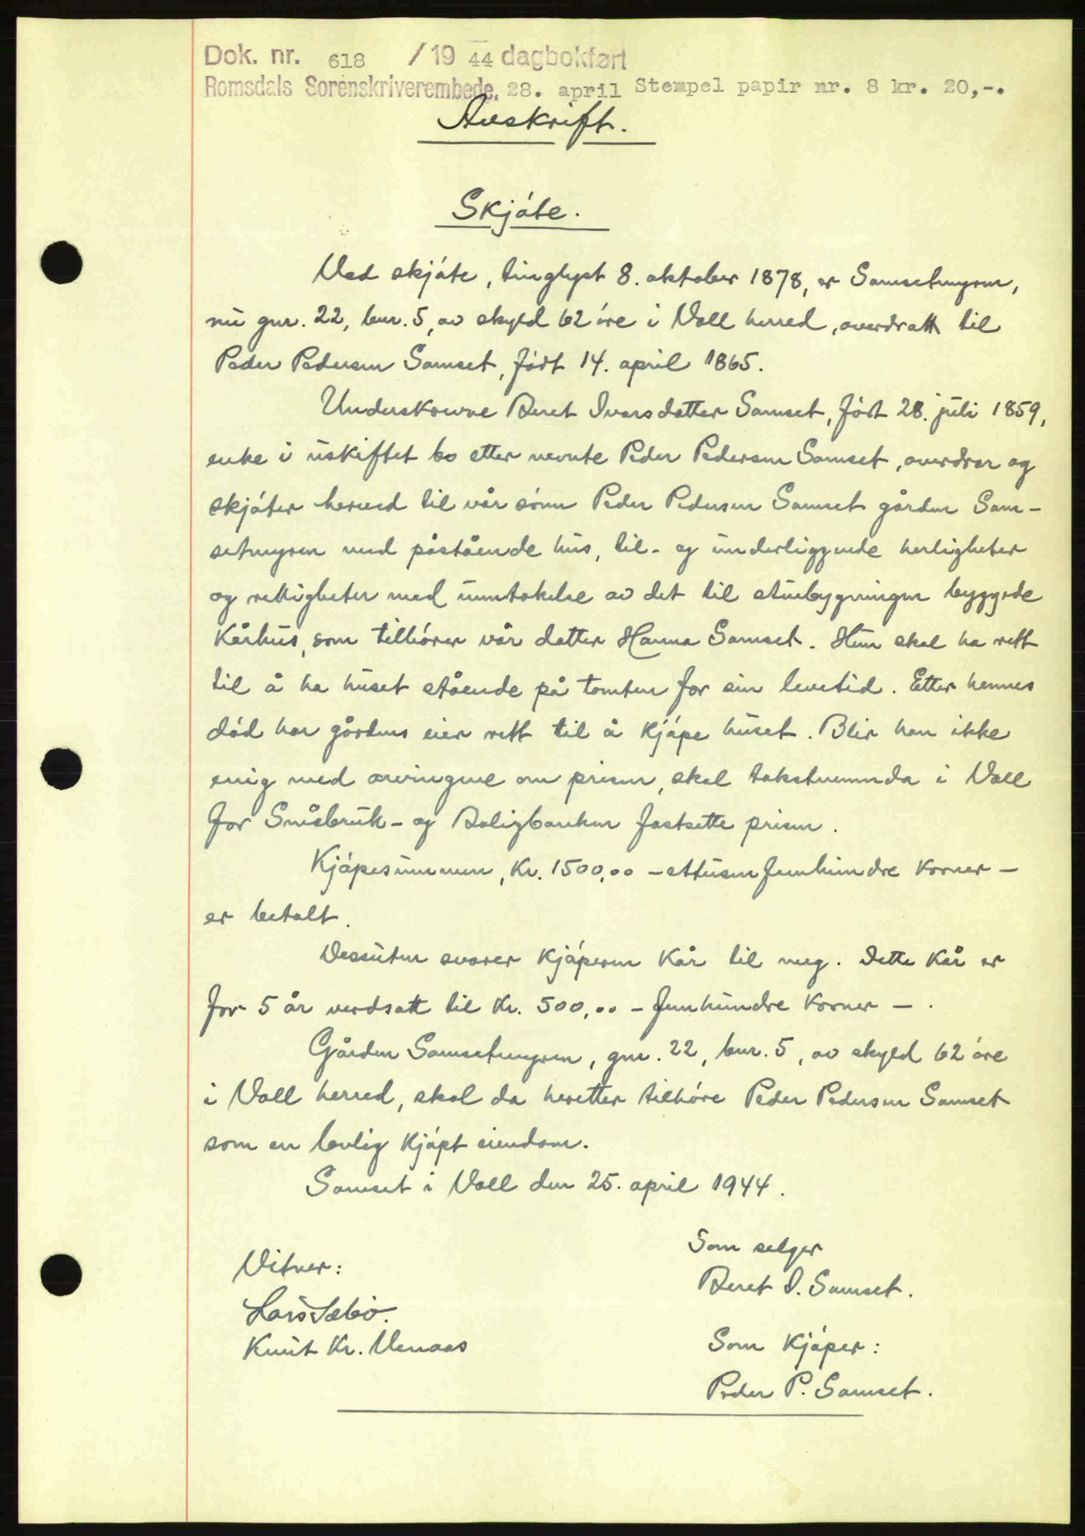 Dok. nr. 618 /19 44 dagbokført
Romsdals Sorenskriverembede. 28. april Stempel papir nr. 8 kr. 20,-.
Avskrift.
Skjóte.
Ved skjóte, tinglyst 8. oktober 1878, er Samsetmyren,
nu gnr. 22, bnr. 5, av skyld 62 óre i Voll herred, overdratt til
Peder Pedersen Samset, fódt 14. april 1865.
Underskrevne Beret Iversdatter Samset, fódt 28. juli 1859,
enke i uskiftet bo etter nevnte Peder Pedersen Samset, overdrar og
skjóter herved til vår sónn Peder Pedersen Samset gården Sam-
setmyren med påstående hus, til- og underliggende herligheter
og rettigheter med unntakelse av det til stuebygningen byggede
kårhus, som tilhórer vår datter Hanna Samset. Hun skal ha rett
til å ha huset stående på tomten for sin levetid. Etter hennes
dód har gårdens eier rett til å kjópe huset. Blir han ikke
enig med arvingene om prisen, skal takstnemnda i Voll
for Småbruk- og Boligbanken fastsette prisen.
Kjópesummen, kr. 1500,00 - ettusenfemhundre kroner -
er betalt.
Dessuten svarer kjóperen kår til meg. Dette kår er
for 5 år verdsatt til kr. 500,00 - femhundre kroner - .
Gården Samsetmyren, gnr. 22, bnr. 5, av skyld 62 óre
i Voll herred, skal da heretter tilhóre Peder Pedersen Samset
som en lovlig kjópt eiendom.
Samset i Voll den 25. april 1944.
Som selger
Beret I. Samset.
Vitner:
Lars Sæbó.
Knut Kr. Venaas
Som kjóper:
Peder P. Samset.